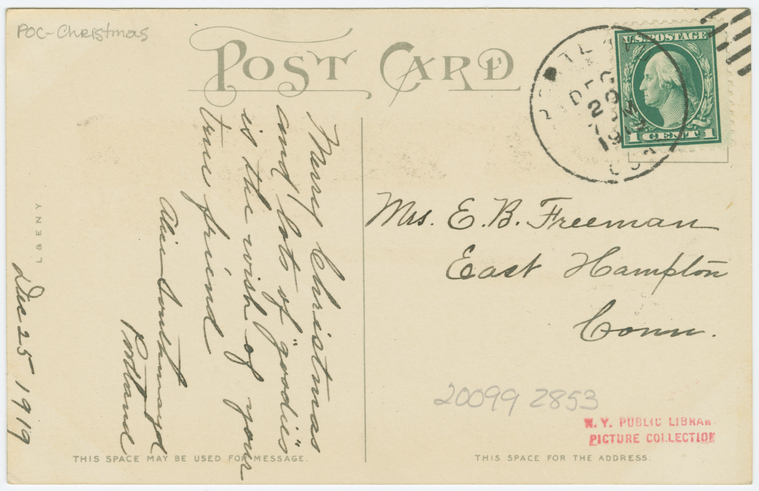 POC-Christmas
POST CARD
U.S. POSTAGE
1 CENT 1
DEC
20
Merry Christmas
and lots of "goodies"
is the wish of your
true friend
Alice Southmayd
Portland
Dec 25 1919
L&ENY
Mrs. E. B. Freeman
East Hampton
Conn.
20099 2853
N.Y. PUBLIC LIBRAR
PICTURE COLLECTION
THIS SPACE MAY BE USED FOR MESSAGE.
THIS SPACE FOR THE ADDRESS.